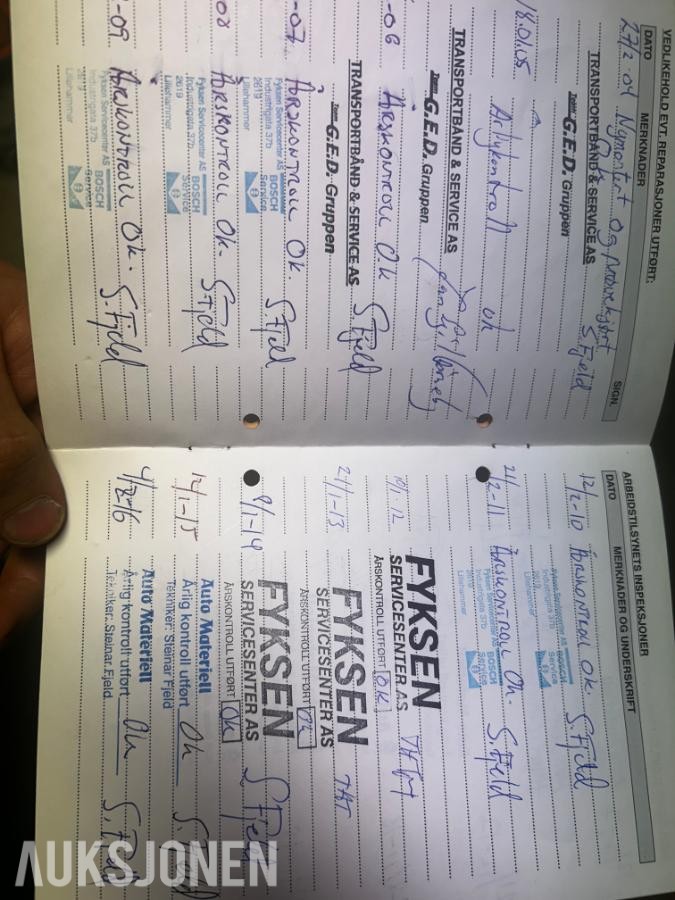 VEDLIKEHOLD EVT. REPARASJONER UTFØRT:
DATO MERKNADER SIGN.
27/2 04 Nymontert og
S.Fjeld
TRANSPORTBÅND & SERVICE AS
G.E.D. Gruppen
18.01.05 ok
TRANSPORTBÅND & SERVICE AS
G.E.D. Gruppen
-06 ÅRSKONTROLL OK S.Fjeld
TRANSPORTBÅND & SERVICE AS
G.E.D. Gruppen
-07 ÅRSKONTROLL OK. S.Fjeld
Fyksen Servicecenter AS
Industrigata 37b
2619
Lillehammer
BOSCH
Service
08 ÅRSKONTROLL OK. S.Fjeld
Fyksen Servicecenter AS
Industrigata 37b
2619
Lillehammer
BOSCH
Service
-09 ÅRSKONTROLL OK. S.Fjeld
Fyksen Servicecenter AS
Industrigata 37b
2619
Lillehammer
BOSCH
Service
ARBEIDSTILSYNETS INSPEKSJONER
DATO MERKNADER OG UNDERSKRIFT
12/2-10 ÅRSKONTROLL OK. S.Fjeld
Fyksen Servicecenter AS
Industrigata 37b
2619
Lillehammer
BOSCH
Service
21/2-11 ÅRSKONTROLL OK. S.Fjeld
Fyksen Servicecenter AS
Industrigata 37b
2619
Lillehammer
BOSCH
Service
10/1-12 FYKSEN
SERVICESENTER AS
ÅRSKONTROLL UTFØRT OK
24/1-13 FYKSEN
SERVICESENTER AS
ÅRSKONTROLL UTFØRT OK
9/1-14 FYKSEN
SERVICESENTER AS
ÅRSKONTROLL UTFØRT OK S.Fjeld
12/1-15 Auto Materiell
Årlig kontroll utført Ok
Tekniker: Steinar Fjeld
Auto Materiell
Årlig kontroll utført Ok S.Fjeld
Tekniker: Steinar Fjeld
AUKSJONEN